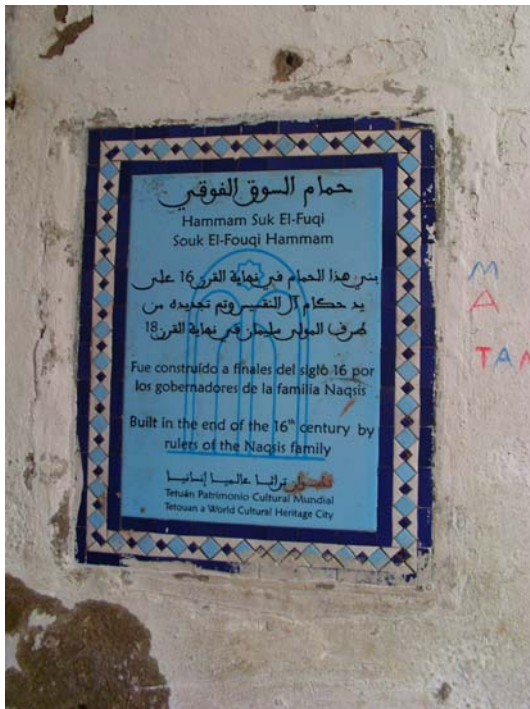 حمام السوق الفوقي
Hammam Suk El-Fuqi
Souk El-Fouqi Hammam
بني هذا الحمام في نهاية القرن 16 على
يد حكام آل النقسيس وتم تجديده من
طرف المولى سليمان في نهاية القرن 18
Fue construído a finales del siglo 16 por
los gobernadores de la familia Naqsis
Built in the end of the 16th century by
rulers of the Naqsis family
تراثا عالميا إنسانيا
Tetuán Patrimonio Cultural Mundial
Tetouan a World Cultural Heritage City
M
A
TAN